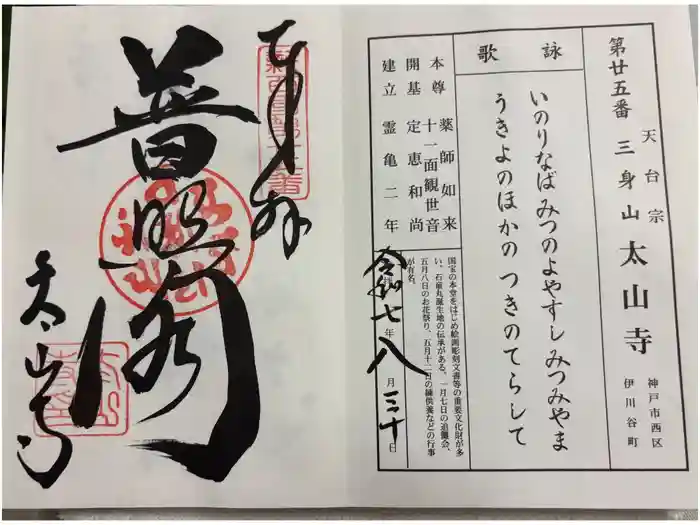 天台宗
第廿五番 三身山 太山寺
神戸市西区
伊川谷町
詠歌
いのりなば みつのよやすし みつみやま
うきよのほかの つきのてらして
本尊 薬師如来
十一面観世音
開基 定恵和尚
建立 霊亀二年
国宝の本堂をはじめ絵画彫刻文書等の重要文化財が多
い。石童丸誕生地の伝承がある。一月七日の追儺会、
五月八日のお花祭り、五月十二日の練供養などの行事
が有名。
令和七年八月三十日
奉拝
普照閣
太山寺